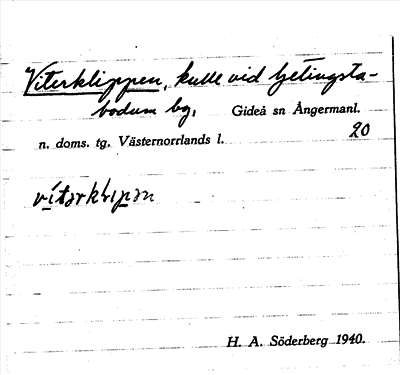 Viterklippen, kulle vid Getingsta-
bodum by, Gideå sn Ångermanl.
20
n. doms. tg. Västernorrlands l.
vítərklıpən
H. A. Söderberg 1940.